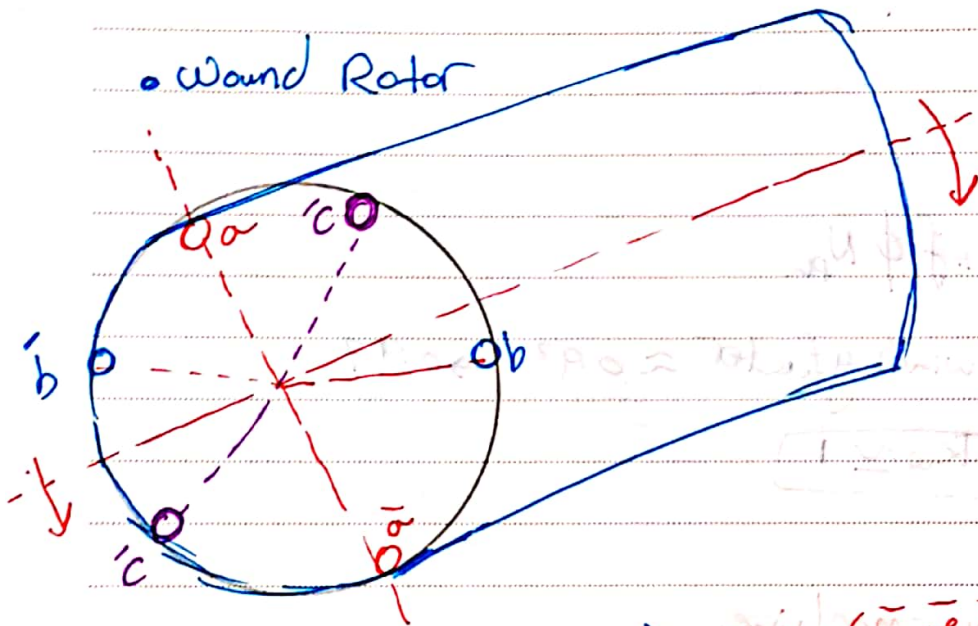 • Wound Rotor
a
'c
b̄
b
'c
ā